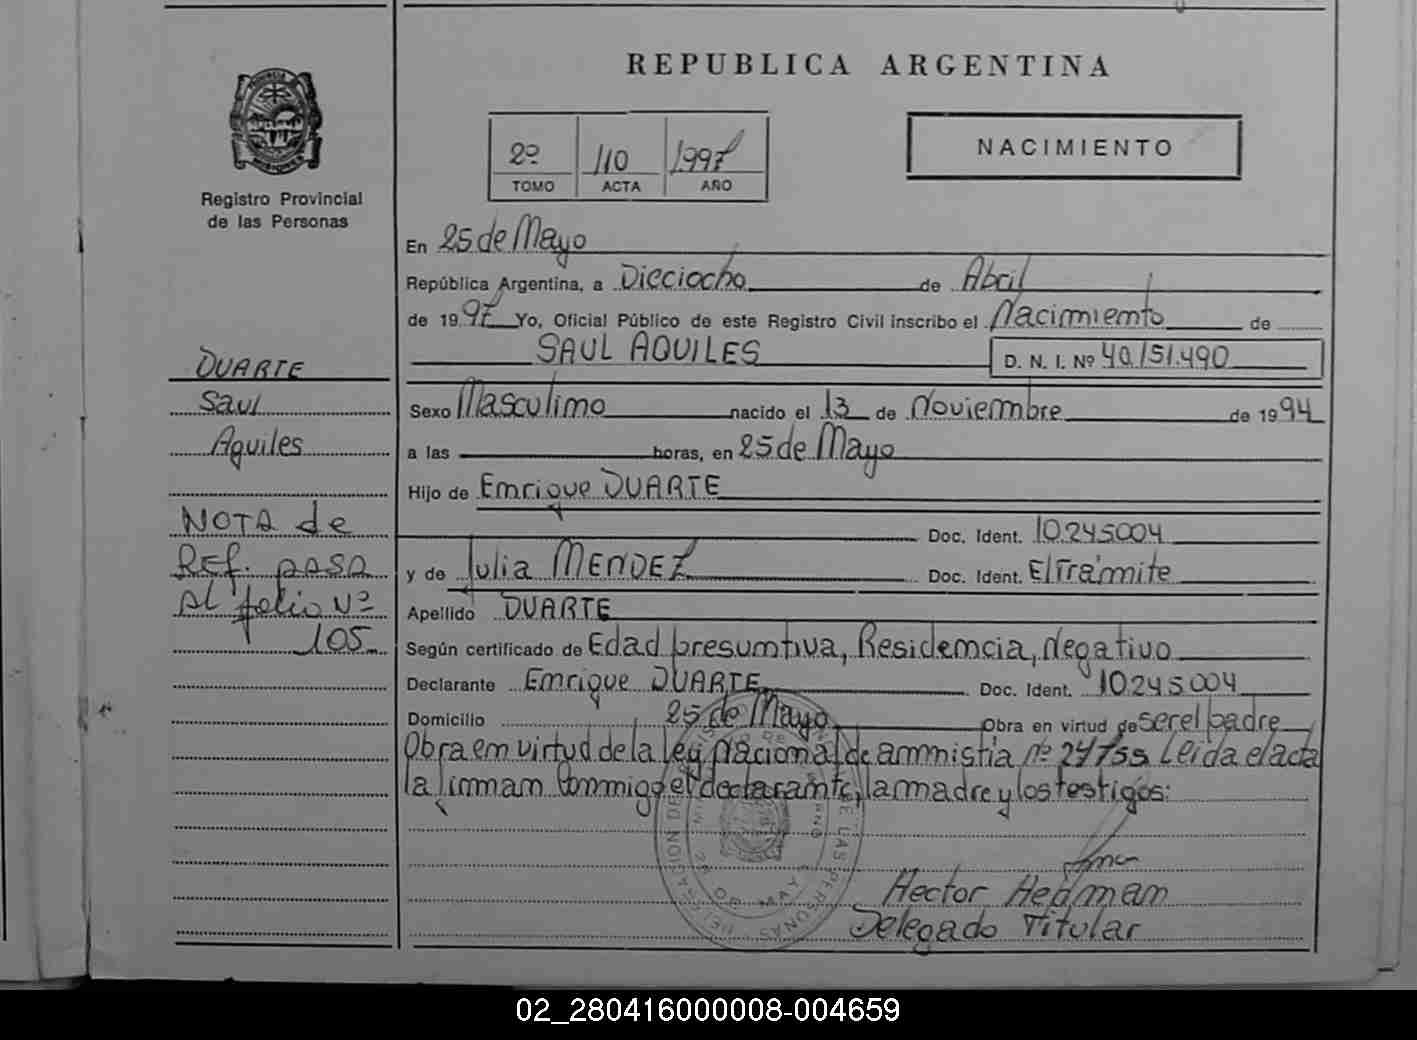 REPUBLICA ARGENTINA
2º 110 1997
TOMO ACTA AÑO
NACIMIENTO
Registro Provincial
de las Personas
En 25 de Mayo
República Argentina, a Dieciocho de Abril
de 1997 Yo, Oficial Público de este Registro Civil inscribo el Nacimiento de
SAUL AQUILES D. N. I. Nº 40.151.490
DUARTE
Saul
Aquiles
Sexo Masculino nacido el 13 de Noviembre de 1994
a las horas, en 25 de Mayo
Hijo de Enrique DUARTE
Doc. Ident. 10.245.004
y de Julia MENDEZ Doc. Ident. El Trámite
NOTA de
Ref. pasa
al folio Nº
105
Apellido DUARTE
Según certificado de Edad presuntiva, Residencia, Negativo
Declarante Enrique DUARTE Doc. Ident. 10.245.004
Domicilio 25 de Mayo Obra en virtud de ser el padre
Obra en virtud de la ley nacional de amnistia nº 24755 Leida el acta
la firman conmigo el declarante, la madre y los testigos:
Hector Hernan
Delegado Titular
02_280416000008-004659